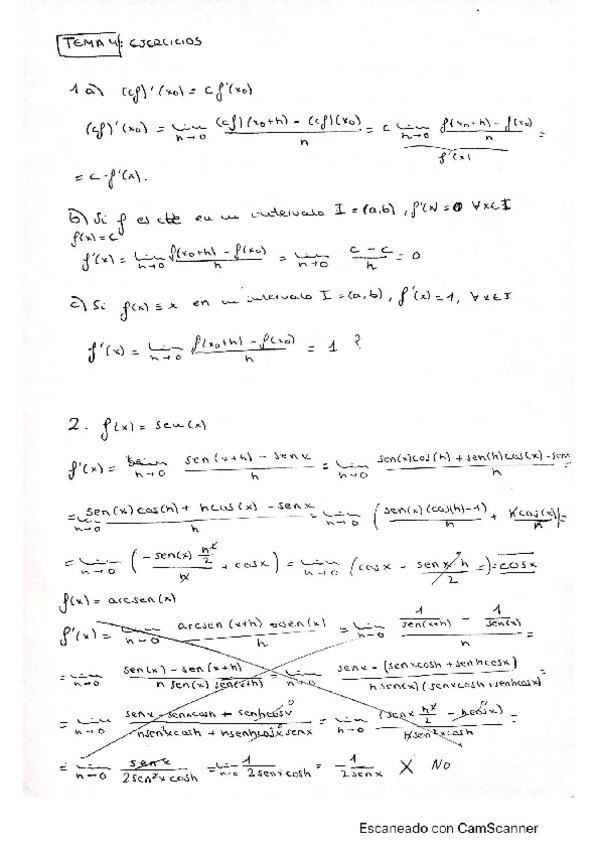 TEMA 4: EJERCICIOS
1 a) (cf)'(x0) = c f'(x0)
(cf)'(x0) = lim h→0 (cf)(x0+h) - (cf)(x0) / h = c lim h→0 f(x0+h) - f(x0) / h =
f'(x)
= c·f'(x).
b) Si f es cte en un intervalo I = (a,b), f'(x) = 0 ∀x∈I
f(x) = c
f'(x) = lim h→0 f(x0+h) - f(x0) / h = lim h→0 c - c / h = 0
c) Si f(x) ≡ x en un intervalo I = (a,b), f'(x) = 1, ∀x∈I
f'(x) = lim h→0 f(x0+h) - f(x0) / h = 1 ?
2. f(x) = sen(x)
f'(x) = lim h→0 sen(x+h) - senx / h = lim h→0 sen(x)cos(h) + sen(h)cos(x) - sen / h
= lim h→0 sen(x)cos(h) + hcos(x) - senx / h = lim h→0 ( sen(x)(cos(h)-1) / h + hcos(x) / h ) =
= lim h→0 ( -sen(x) h²/2 / h + cosx ) = lim h→0 ( cosx - senx·h / 2 ) = cosx
f(x) = arcsen(x)
f'(x) = lim h→0 arcsen(x+h) - arcsen(x) / h = lim h→0 1/sen(x+h) - 1/sen(x) =
= lim h→0 sen(x) - sen(x+h) / h sen(x) sen(x+h) = lim h→0 senx - (senxcosh + senhcosx) / h sen(x)(senxcosh + senhcosx) =
= lim h→0 senx - senxcosh + senhcosx / hsen²xcosh + hsenhcosx senx = lim h→0 (senx h²/2 - hcosx) / hsen²xcosh =
= lim h→0 senx / 2sen²xcosh = lim 1 / 2senxcosh = 1 / 2senx X NO
Escaneado con CamScanner